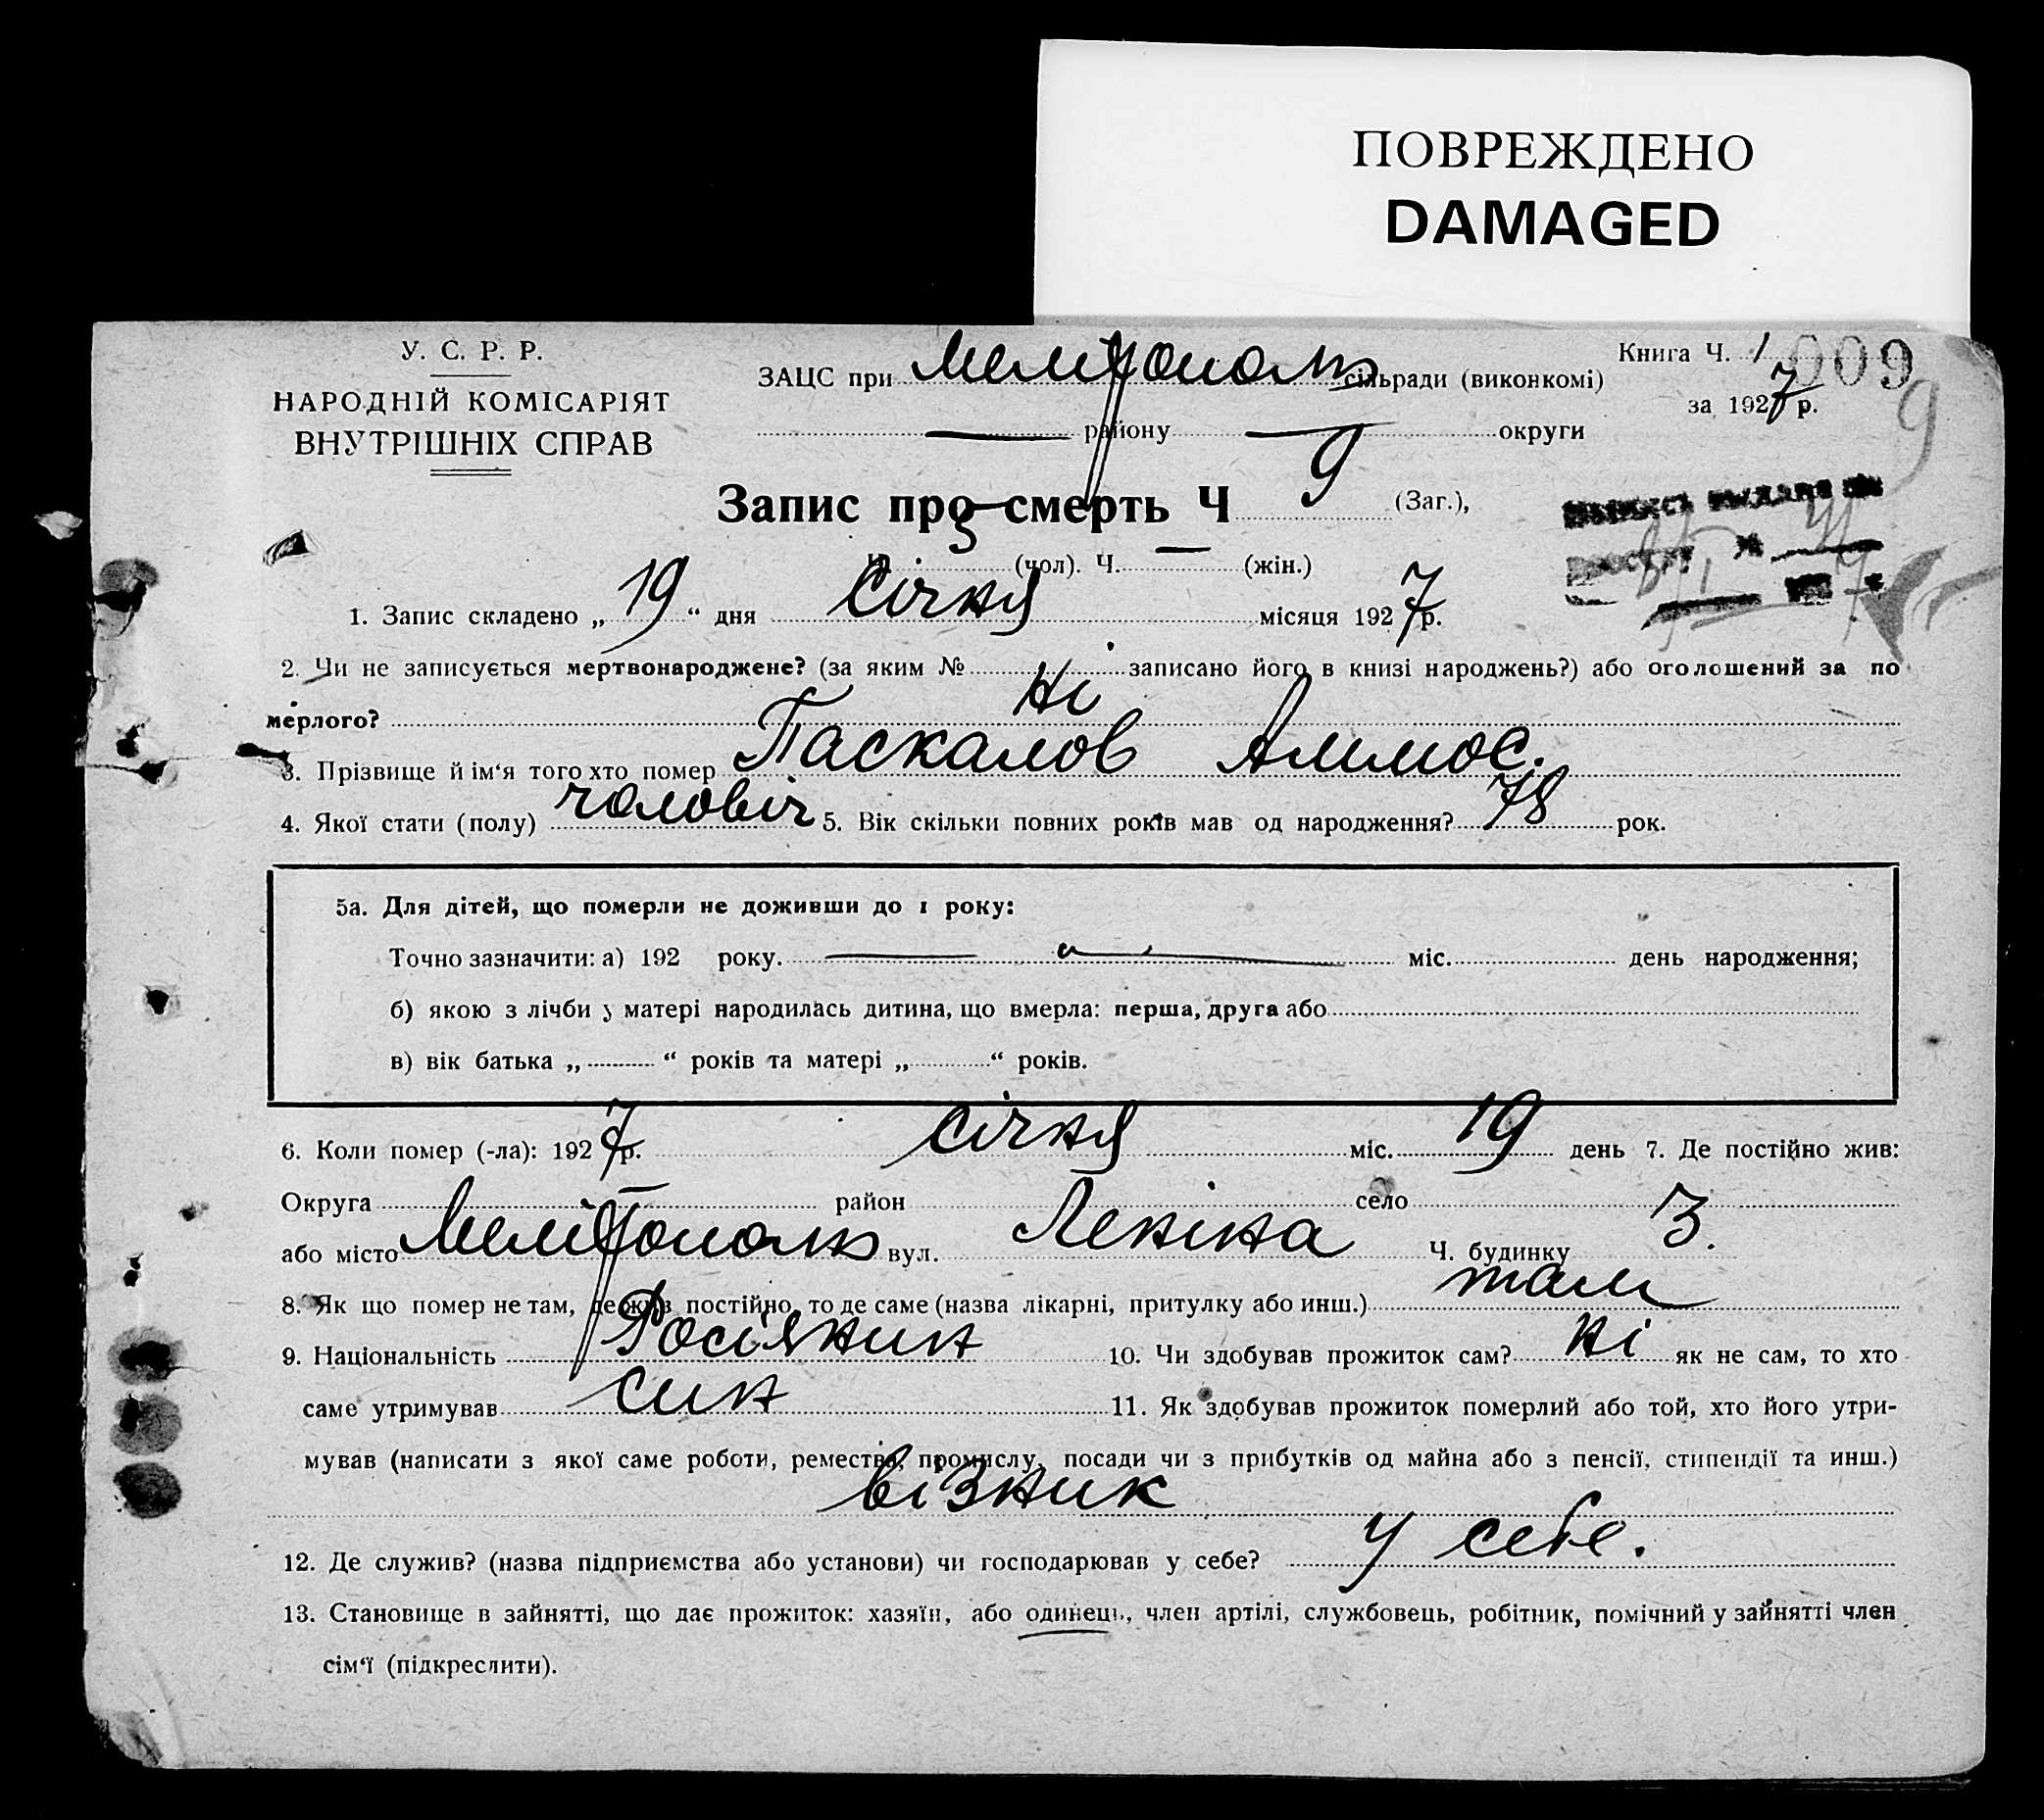 ПОВРЕЖДЕНО
DAMAGED
У. С. Р. Р.
НАРОДНІЙ КОМІСАРІЯТ
ВНУТРІШНІХ СПРАВ
ЗАЦС при Мелітополь сільради (виконкомі)
району округи
Книга Ч. 1
009
за 1927 р.
9
Запис про смерть Ч 9 (Заг.),
Ч. 5 (чол). Ч. — (жін.)
1. Запис складено „19“ дня Січня місяця 1927 р.
2. Чи не записується мертвонароджене? (за яким № записано його в книзі народжень?) або оголошений за по
мерлого? Ні
3. Прізвище й ім‘я того хто помер Паскалов Аммос.
4. Якої стати (полу) чоловіч 5. Вік скільки повних років мав од народження? 78 рок.
5а. Для дітей, що померли не доживши до 1 року:
Точно зазначити: а) 192 року. міс. день народження;
б) якою з лічби у матері народилась дитина, що вмерла: перша, друга або
в) вік батька „ “ років та матері „ “ років.
6. Коли помер (-ла): 1927 р. січня міс. 19 день 7. Де постійно жив:
Округа — район село
або місто Мелітополь вул. Леніна Ч. будинку 3.
8. Як що помер не там, де жив постійно, то де саме (назва лікарні, притулку або инш.) там
9. Національність Росіянин 10. Чи здобував прожиток сам? Ні як не сам, то хто
саме утримував син 11. Як здобував прожиток померлий або той, хто його утри-
мував (написати з якої саме роботи, ремества, промислу, посади чи з прибутків од майна або з пенсії, стипендії та инш.)
візник
12. Де служив? (назва підприємства або установи) чи господарював у себе? у себе.
13. Становище в зайнятті, що дає прожиток: хазяїн, або одинець, член артілі, службовець, робітник, помічний у зайнятті член
сім‘ї (підкреслити).